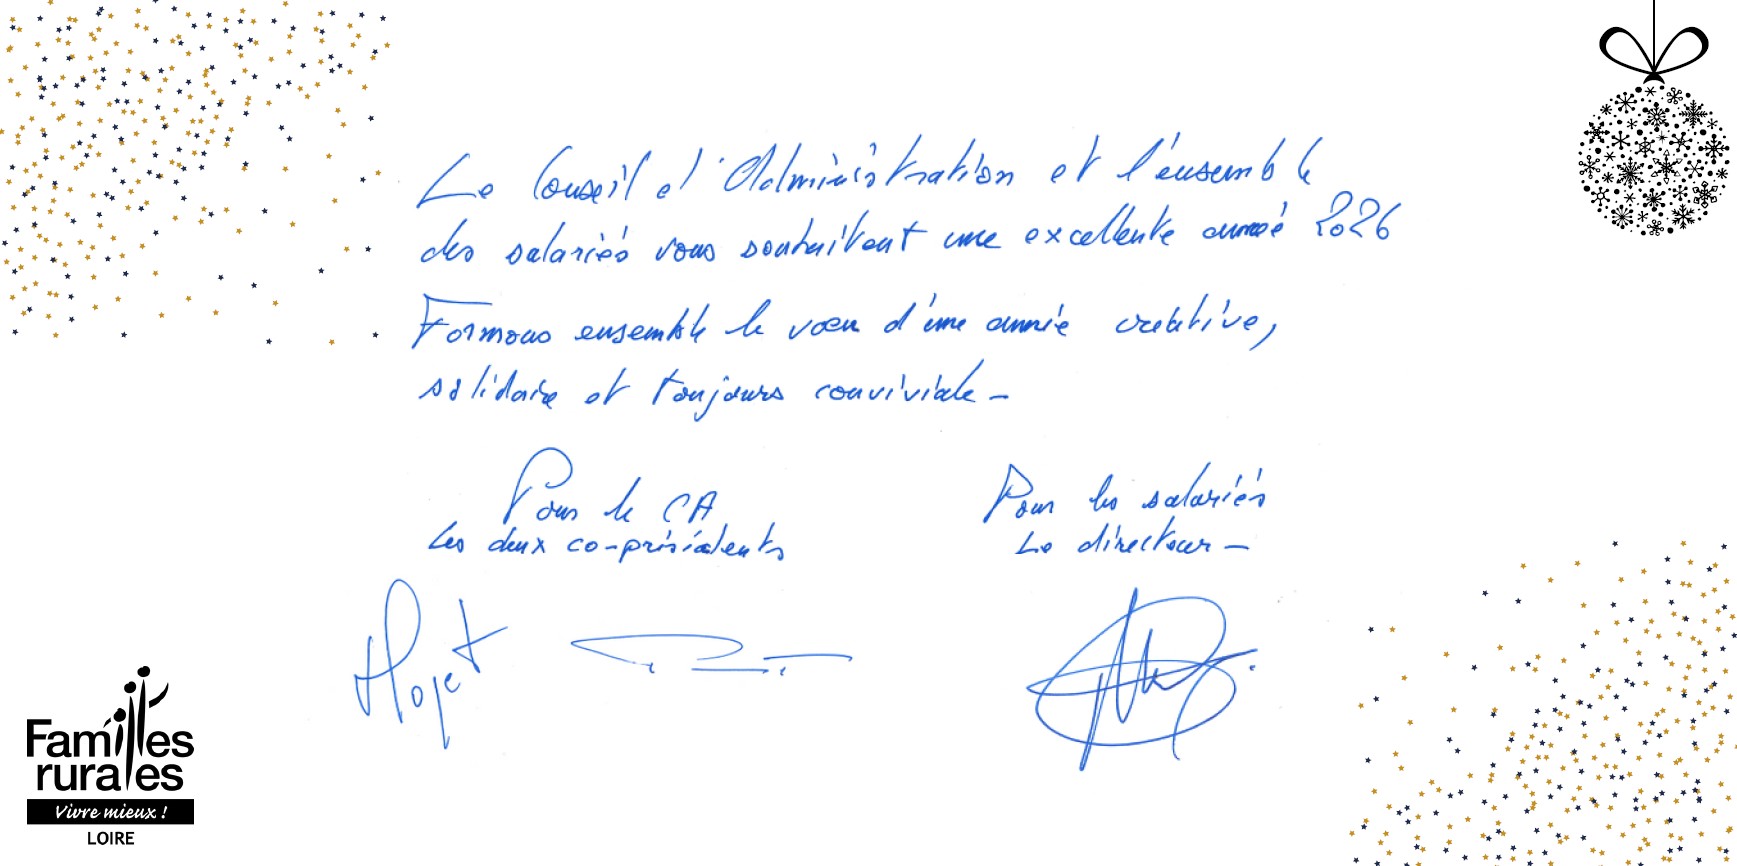 Le Conseil d'Administration et l'ensemble
des salariés vous souhaitent une excellente année 2026
Formons ensemble le vœu d'une année créative,
solidaire et toujours conviviale -
Pour le CA
Les deux co-présidents
Pour les salariés
Le directeur -
Familles
rurales
Vivre mieux !
LOIRE